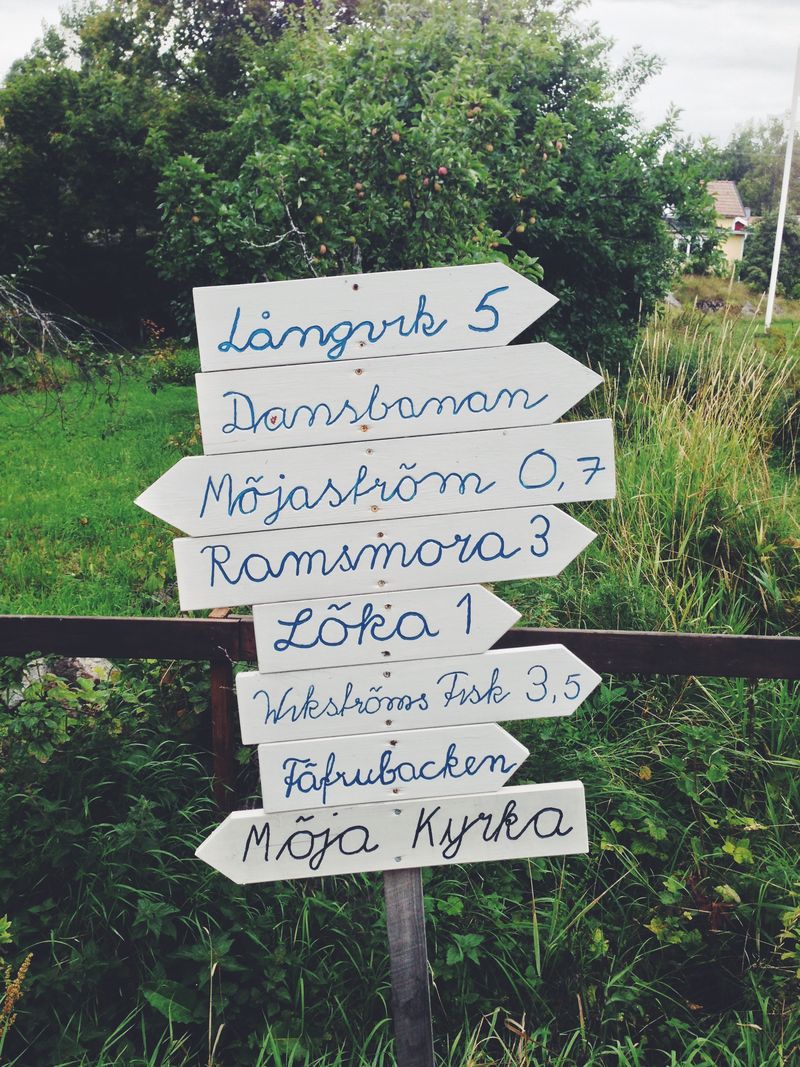 Långvik 5
Dansbanan
Möjaström 0,7
Ramsmora 3
Löka 1
Wikströms Fisk 3,5
Fäfrubacken
Möja Kyrka